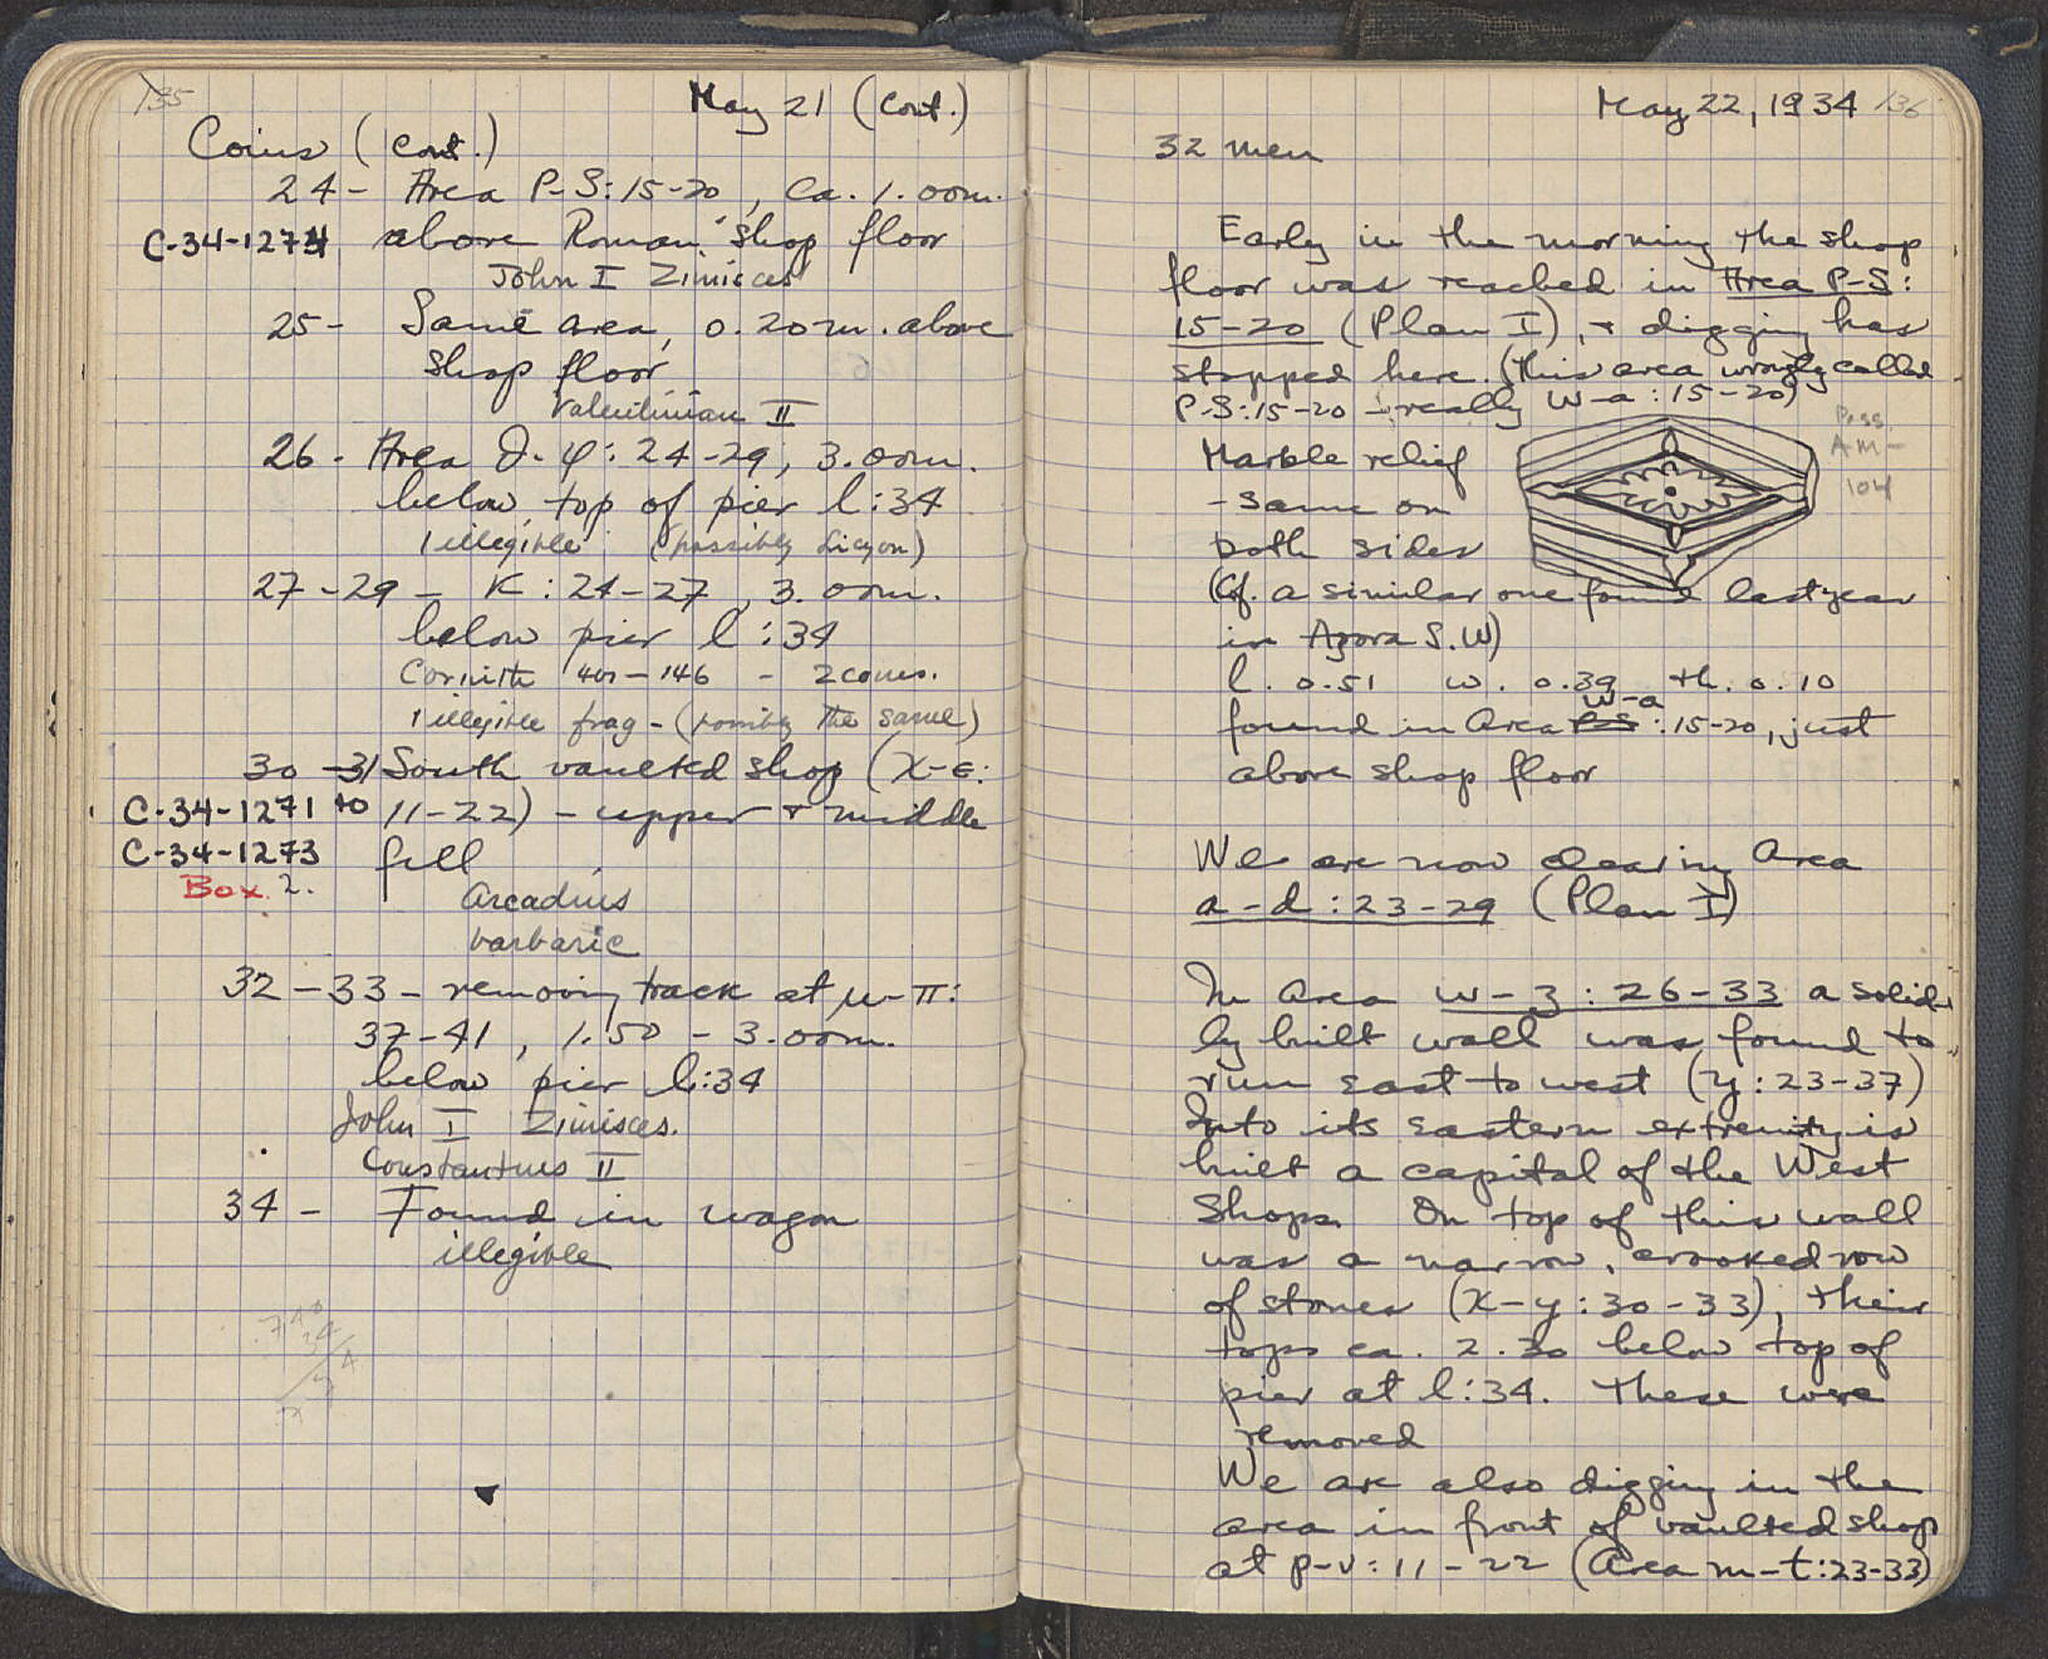 135
May 21 (cont.)
Coins (cont.)
24- Area P-S:15-20, ca. 1.00m.
C-34-1274 above Roman shop floor
John I Zimisces
25- Same area, 0.20m. above
shop floor
Valentinian II
26- Area : 24-29, 3.00m.
below top of pier l:34
1 illegible (possibly Sicyon)
27-29 - K:24-27, 3.00m.
below pier l:34
Corinth 400-146 - 2 coins.
1 illegible frag - (possibly the same)
30-31 South vaulted shop (X-E:
C-34-1271 to 11-22) - upper + middle
C-34-1273 fill
Box 2.
Arcadius
barbaric
32-33- removing track at μ-π:
37-41, 1.50 - 3.00m.
below pier l:34
John I Zimisces.
Constantius II
34 - Found in wagon
illegible
May 22, 1934 136
32 men
Early in the morning the shop
floor was reached in Area P-S:
15-20 (Plan I), + digging has
stopped here. (this area wrongly called
P-S:15-20 - really W-a:15-20)
Poss.
A-M-
104
Marble relief
- same on
both sides
(Cf. a similar one found last year
in Agora S.W)
l. 0.51 w. 0.39 th. 0.10
W-a
found in Area P-S:15-20, just
above shop floor
We are now clearing Area
a-d:23-29 (Plan I)
In Area w-z:26-33 a solid-
ly built wall was found to
run east to west (y:23-37)
Into its eastern extremity is
built a capital of the West
Shops. On top of this wall
was a narrow, crooked row
of stones (x-y:30-33), their
tops ca. 2.30 below top of
pier at l:34. These were
removed
We are also digging in the
area in front of vaulted shop
at p-v:11-22 (Area m-t:23-33)